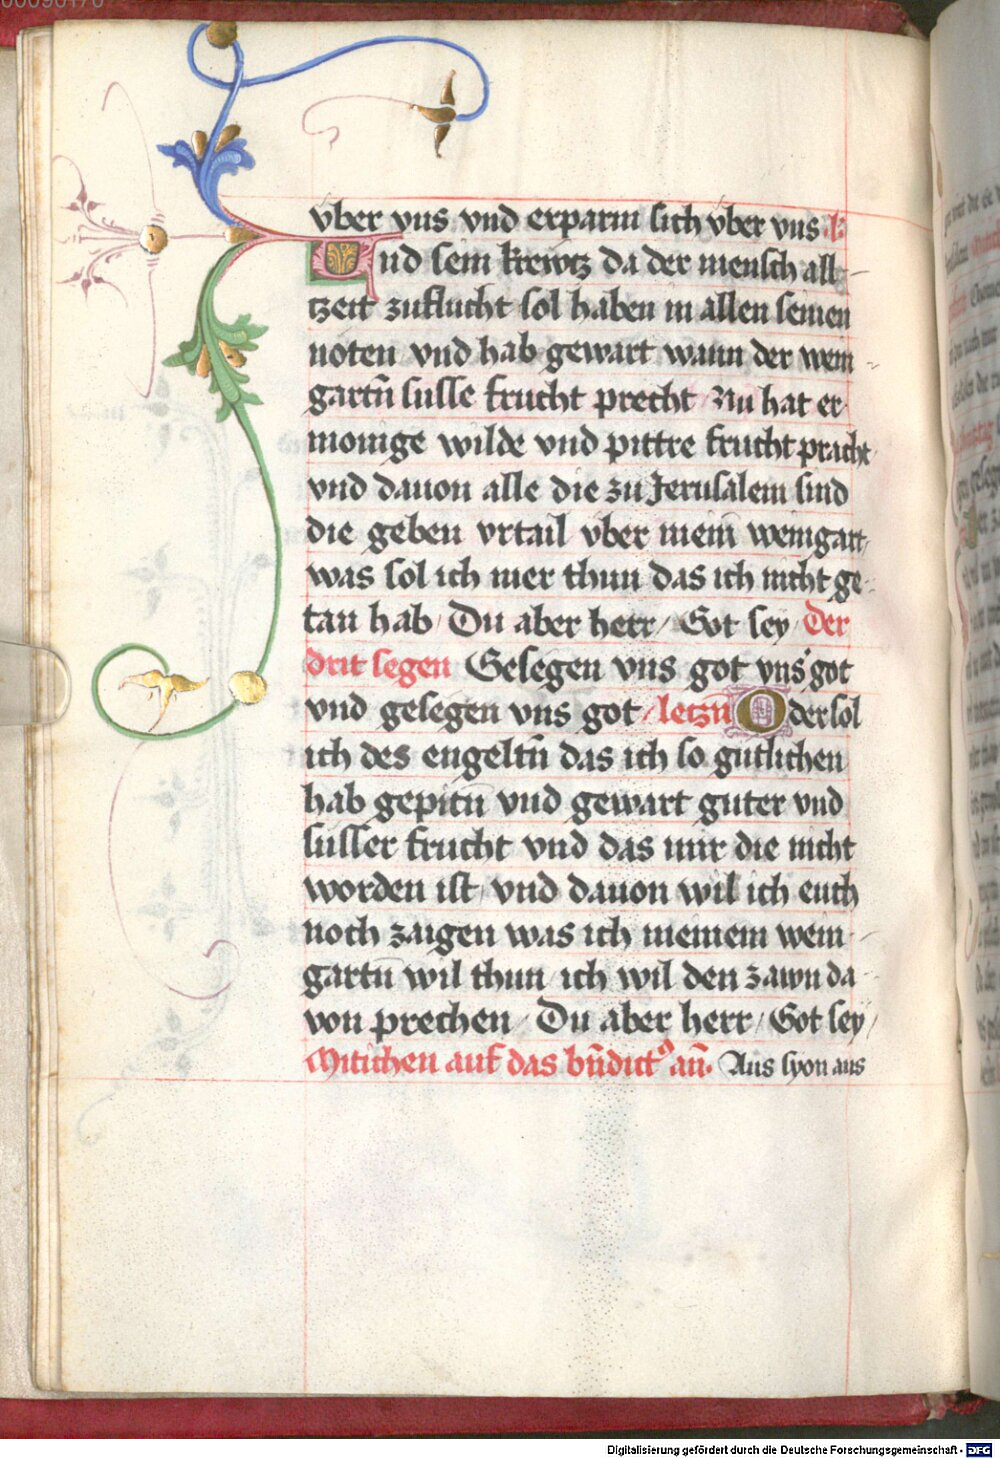 vber vns vnd erparm sich vber vns · l ·
Vnd sein krewtz da der mensch all
tzeit zuflucht sol haben in allen seinen
nöten vnd hab gewart wann der wein
gartñ susse frucht precht Nu hat er
monige wilde vnd pittre frucht pracht
vnd dauon alle die zu Jerusalem sind
die geben vrtail vber mein weingart
was sol ich mer thun das ich nicht ge
tan hab / Du aber herr / Got sey / Der
drit segen Gesegen vns got vns' got
vnd gesegen vns got / letzñ Oder sol
ich des engeltñ das ich so gutlichen
hab gepitñ vnd gewart guter vnd
susser frucht vnd das mir die nicht
worden ist / vnd dauon wil ich euch
noch zaigen was ich meinem wein
gartñ wil thun / ich wil den zawn da
von prechen / Du aber herr / Got sey /
Mitichen auf das bñdict9 añ · Aus syon aus
Digitalisierung gefördert durch die Deutsche Forschungsgemeinschaft - DFG